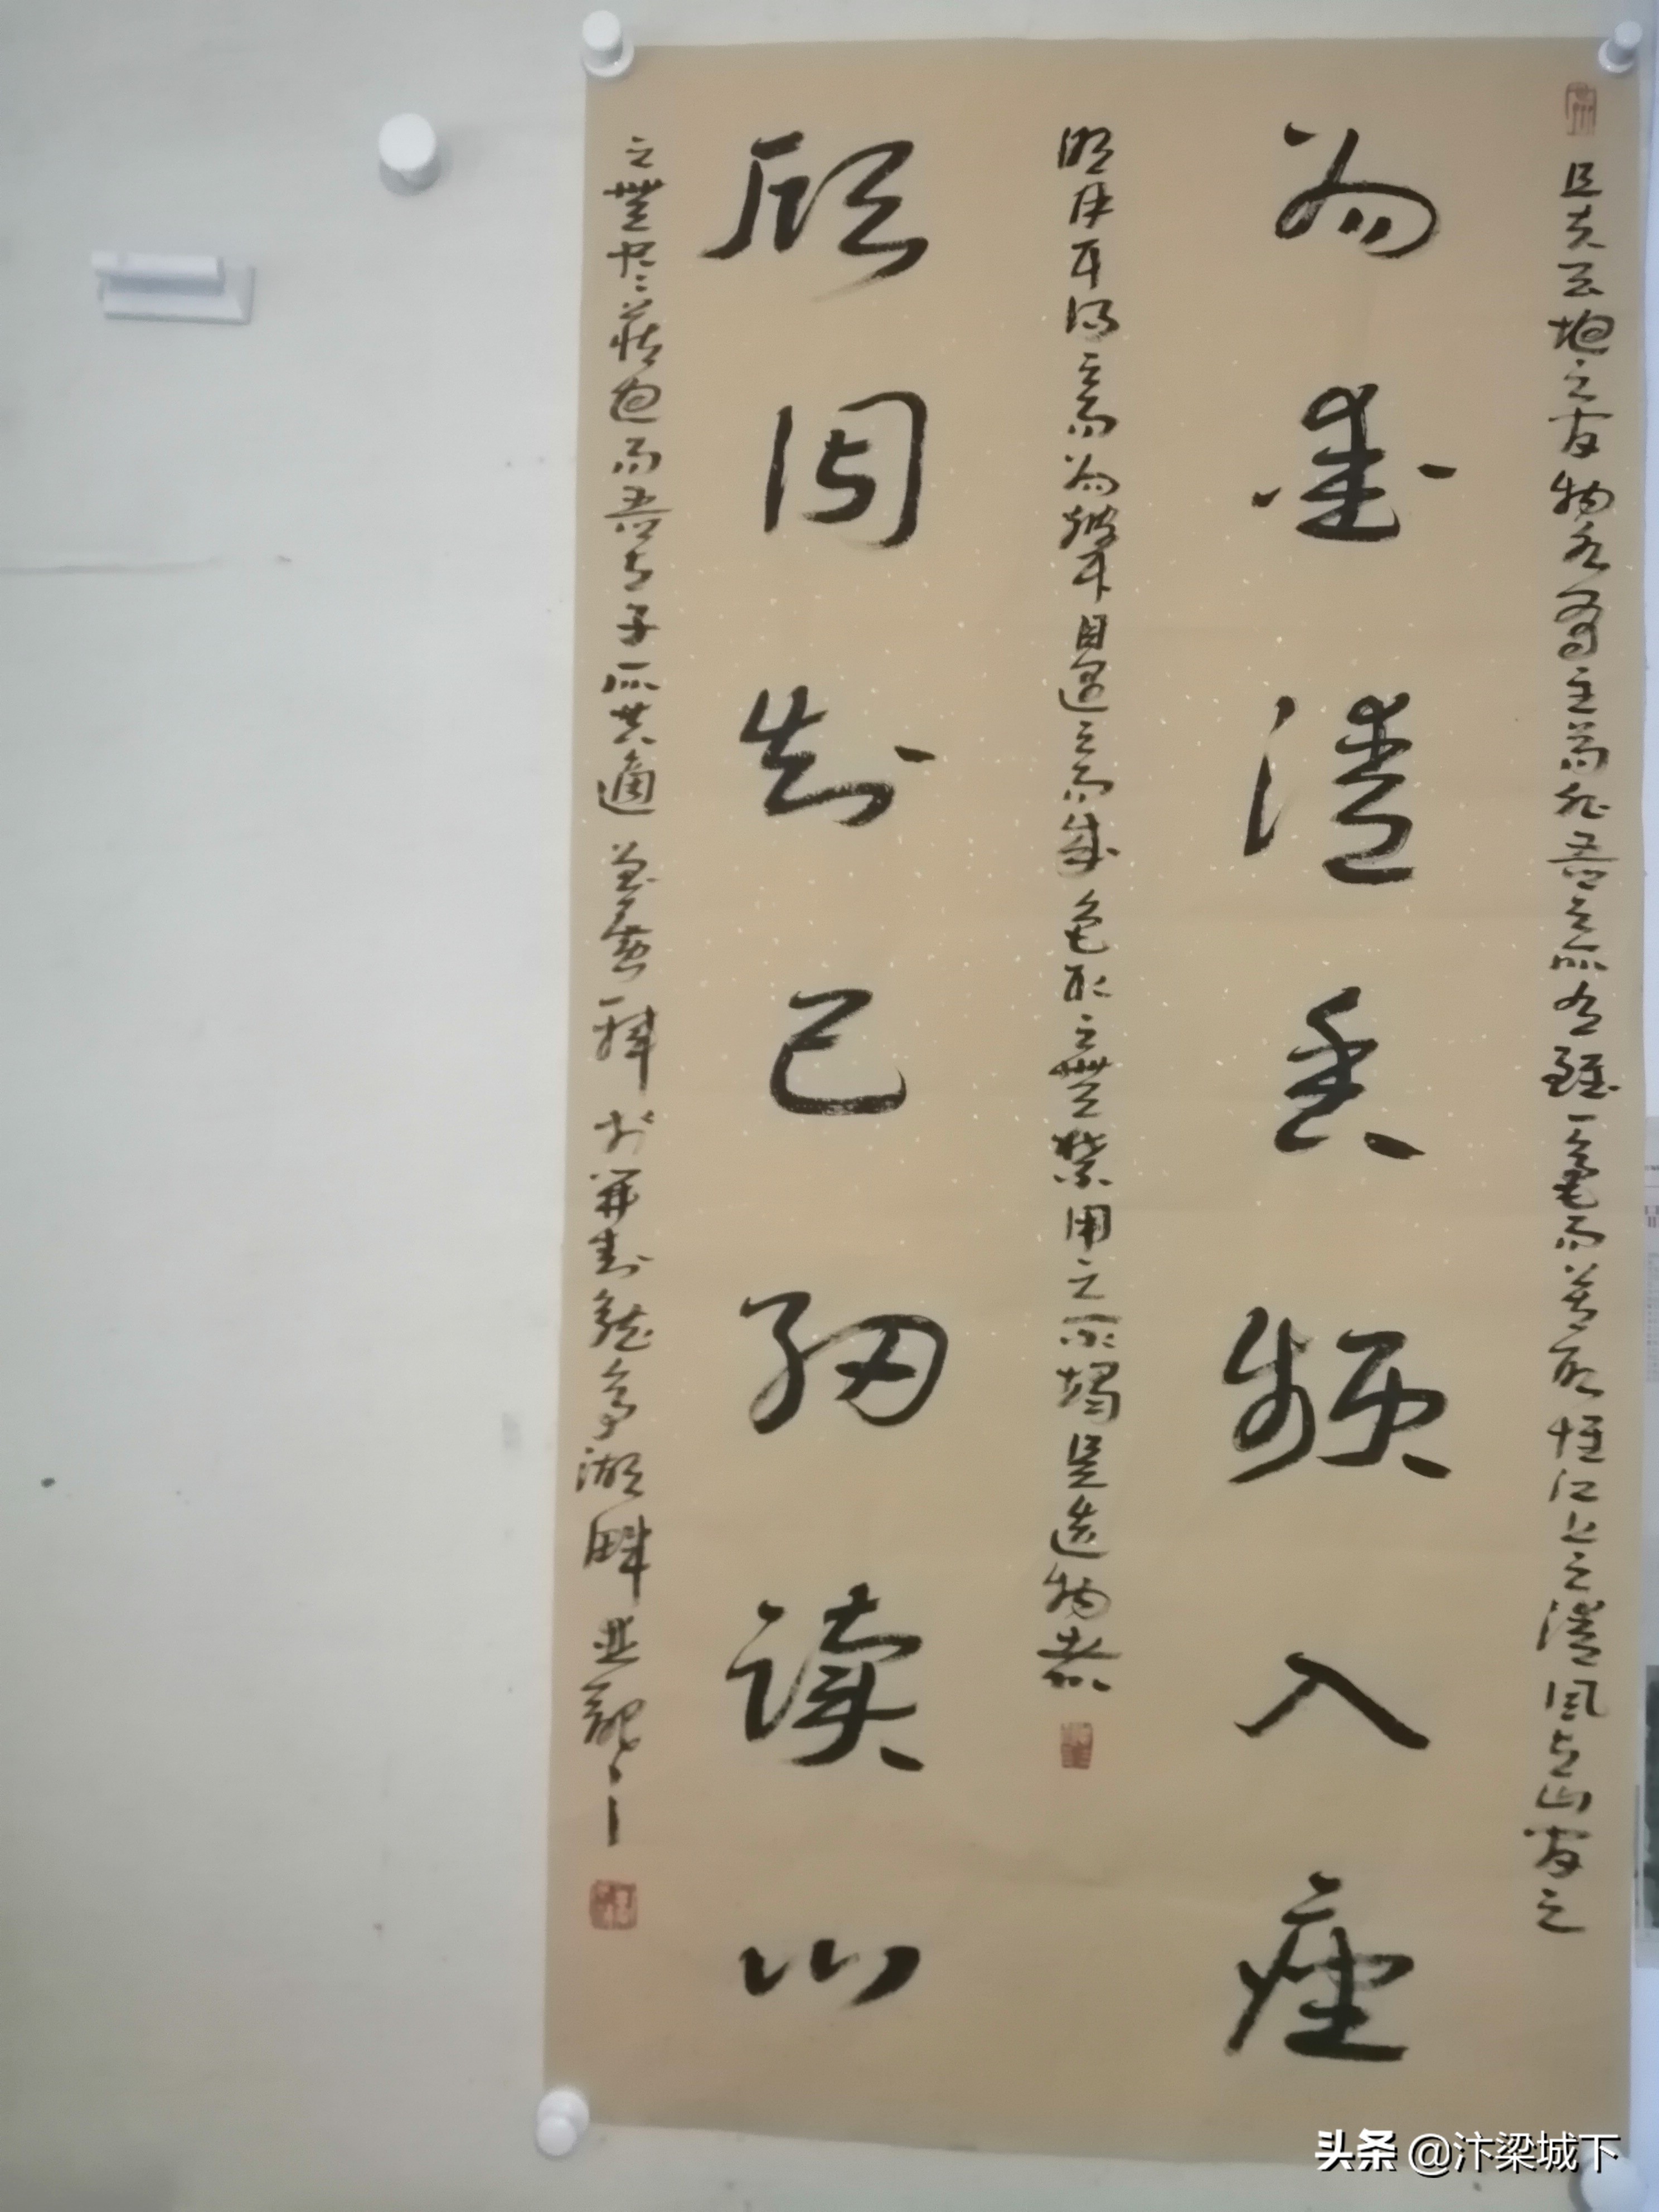 且夫天地之间物各有主苟非吾之所有雖一毫而莫取惟江上之清風与山间之
为爱清香频入座
明月耳得之而为聲目遇之而成色取之無禁用之不竭是造物者
欣同知己细读心
之無尽藏也而吾与子所共適 於开封龍亭湖畔
头条 @汴梁城下